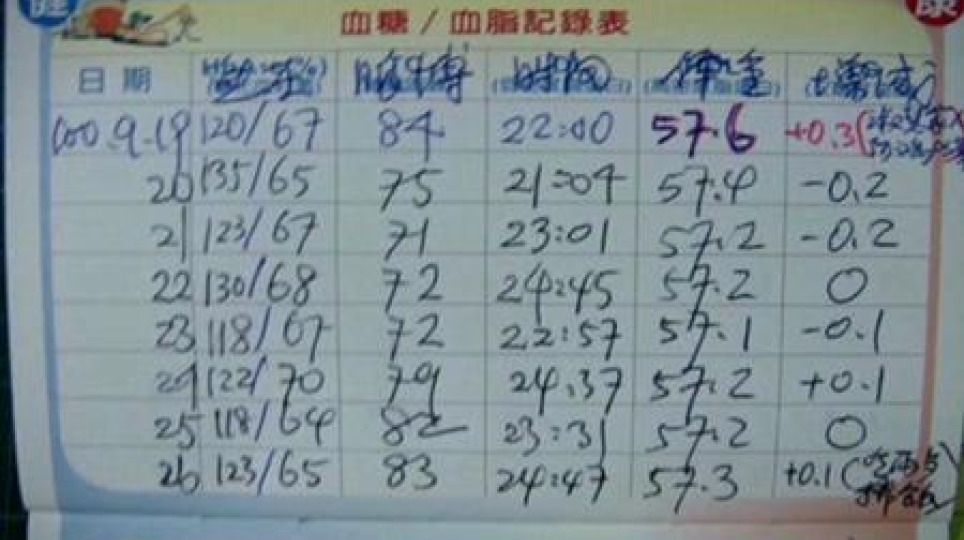 健 康
血糖/血脂記錄表
日期 脈搏 時間 體重
100.9.19 120/67 84 22:00 57.6 +0.3(
20 135/65 75 21:04 57.4 -0.2
21 123/67 71 23:01 57.2 -0.2
22 130/68 72 24:45 57.2 0
23 118/67 72 22:57 57.1 -0.1
24 122/70 79 24:37 57.2 +0.1
25 118/64 82 23:31 57.2 0
26 123/65 83 24:47 57.3 +0.1(吃兩台